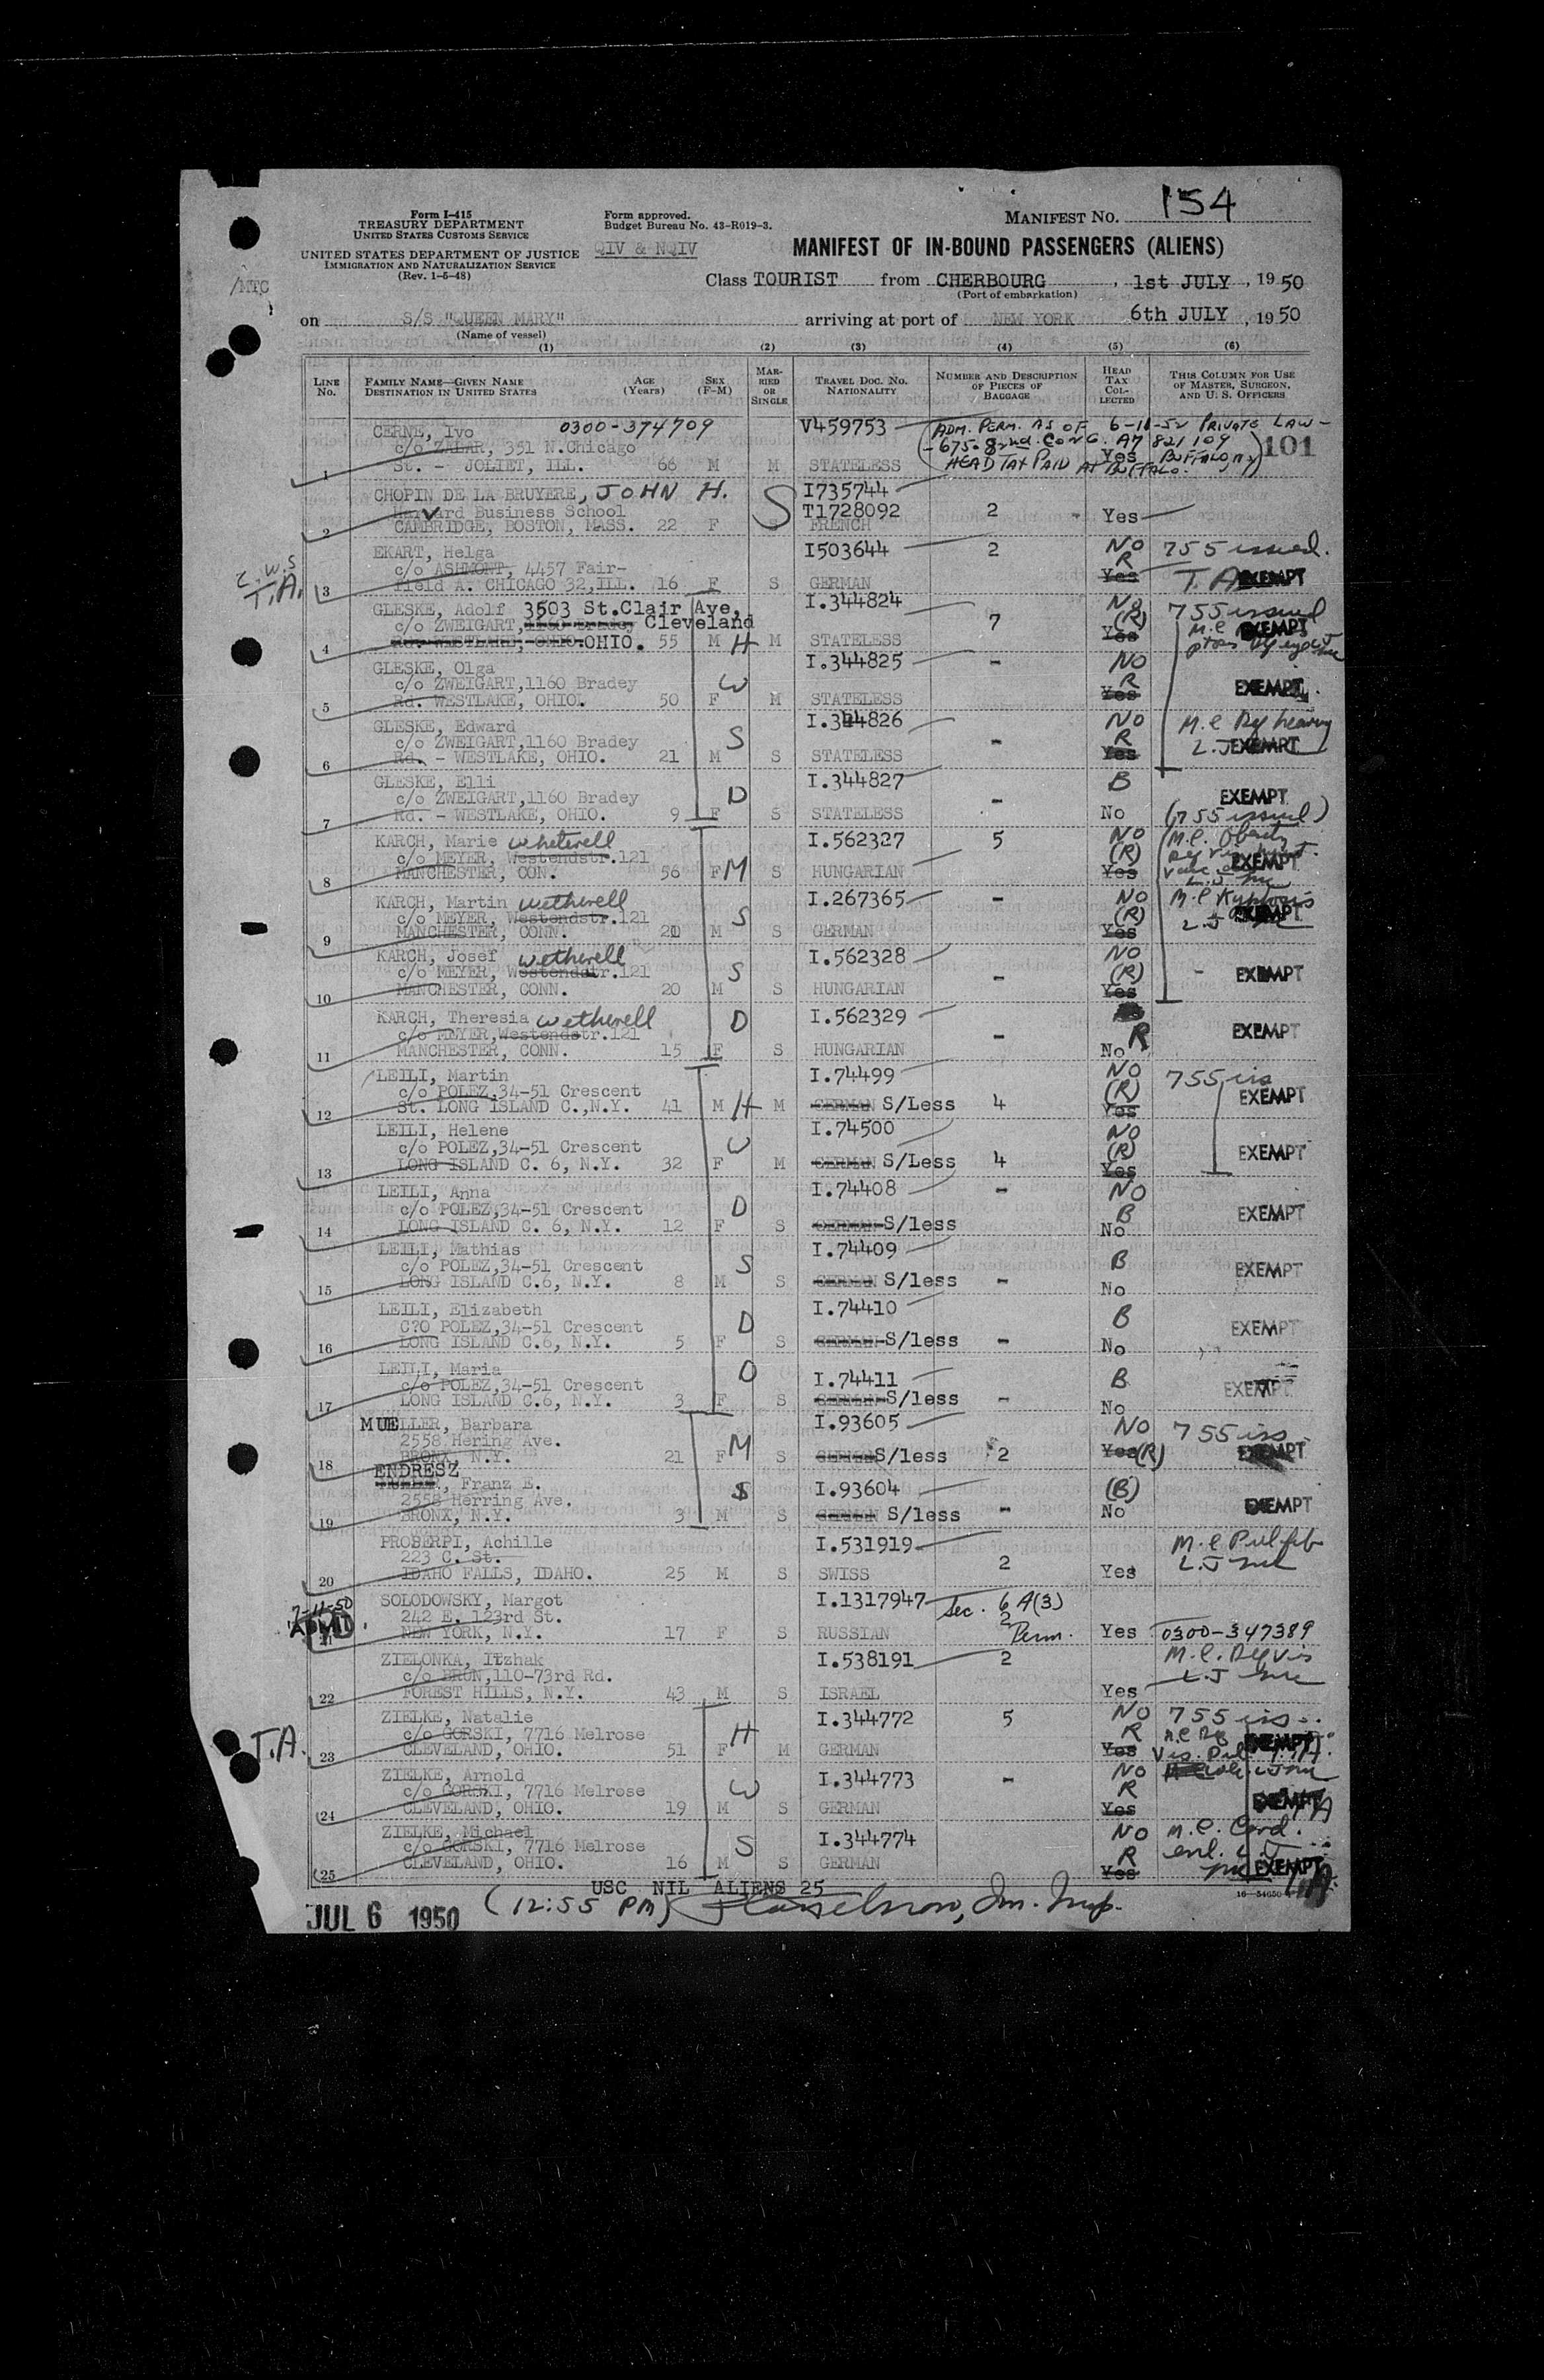 154
Form I-415
TREASURY DEPARTMENT
UNITED STATES CUSTOMS SERVICE
UNITED STATES DEPARTMENT OF JUSTICE
IMMIGRATION AND NATURALIZATION SERVICE
(Rev. 1-5-48)
Form approved.
Budget Bureau No. 43-R019-3.
QIV & NQIV
MANIFEST NO.
MANIFEST OF IN-BOUND PASSENGERS (ALIENS)
Class TOURIST from CHERBOURG, 1st JULY, 1950
(Port of embarkation)
on S/S "QUEEN MARY" arriving at port of NEW YORK 6th JULY, 1950
(Name of vessel)
(1) (2) (3) (4) (5) (6)
LINE No. FAMILY NAME—GIVEN NAME DESTINATION IN UNITED STATES AGE (Years) SEX (F-M) MARRIED OR SINGLE TRAVEL DOC. NO. NATIONALITY NUMBER AND DESCRIPTION OF PIECES OF BAGGAGE HEAD TAX COLLECTED THIS COLUMN FOR USE OF MASTER, SURGEON, AND U. S. OFFICERS
CERNE, Ivo 0300-374709 V459753 ADM. PERM. AS OF 6-11-52 PRIVATE LAW-
c/o ZALAR, 351 N.Chicago -675-82nd. CONG. A7 821 109 101
1 St. - JOLIET, ILL. 66 M M STATELESS HEAD TAX PAID AT BUFFALO. Yes BUFFALO, NY
CHOPIN DE LA BRUYERE, JOHN H. S I735744
Harvard Business School T1728092 2 Yes
2 CAMBRIDGE, BOSTON, MASS. 22 F FRENCH
EKART, Helga I503644 2 NO 755 issued.
c/o ASHMONT, 4457 Fair- R
3 field A. CHICAGO 32,ILL. 16 F S GERMAN Yes T.A. EXEMPT
T.A.
GLESKE, Adolf 3503 St.Clair Ave, I.344824 NO 755 issued
c/o ZWEIGART, Cleveland 7 (R) EXEMPT
4 Rd. WESTLAKE, OHIO. OHIO. 55 M H M STATELESS Yes
GLESKE, Olga I.344825 - NO
c/o ZWEIGART,1160 Bradey W R EXEMPT
5 Rd. WESTLAKE, OHIO. 50 F M STATELESS Yes
GLESKE, Edward I.344826 NO
c/o ZWEIGART,1160 Bradey S - R
6 Rd. - WESTLAKE, OHIO. 21 M S STATELESS Yes EXEMPT
GLESKE, Elli I.344827 B
c/o ZWEIGART,1160 Bradey D - EXEMPT
7 Rd. - WESTLAKE, OHIO. 9 F S STATELESS No (755 issued)
KARCH, Marie Wheterell I.562327 5 NO
c/o MEYER, Westendstr.121 (R) EXEMPT
8 MANCHESTER, CON. 56 F M S HUNGARIAN Yes
KARCH, Martin Wetherell I.267365 - NO
c/o MEYER, Westendstr.121 S (R) EXEMPT
9 MANCHESTER, CONN. M S GERMAN Yes
KARCH, Josef Wetherell I.562328 NO
c/o MEYER, Westendstr.121 S - (R) EXEMPT
10 MANCHESTER, CONN. 20 M S HUNGARIAN Yes
KARCH, Theresia Wetherell D I.562329
c/o MEYER,Westendstr.121 - R EXEMPT
11 MANCHESTER, CONN. 15 F S HUNGARIAN No
LEILI, Martin I.74499 NO 755 iss
c/o POLEZ,34-51 Crescent (R) EXEMPT
12 St. LONG ISLAND C.,N.Y. 41 M H M GERMAN S/Less 4 Yes
LEILI, Helene I.74500 NO
c/o POLEZ,34-51 Crescent W (R) EXEMPT
13 LONG ISLAND C. 6, N.Y. 32 F M GERMAN S/Less 4 Yes
LEILI, Anna I.74408 - NO
c/o POLEZ,34-51 Crescent D B EXEMPT
14 LONG ISLAND C. 6, N.Y. 12 F S GERMAN S/less No
LEILI, Mathias I.74409 B
c/o POLEZ,34-51 Crescent S EXEMPT
15 LONG ISLAND C.6, N.Y. 8 M S GERMAN S/less - No
LEILI, Elizabeth I.74410 B
C?O POLEZ,34-51 Crescent D EXEMPT
16 LONG ISLAND C.6, N.Y. 5 F S GERMAN S/less - No
LEILI, Maria D I.74411 B
c/o POLEZ,34-51 Crescent EXEMPT
17 LONG ISLAND C.6, N.Y. 3 F S GERMAN S/less - No
MUELLER, Barbara I.93605 NO 755 iss
2558 Hering Ave. M
18 BRONX, N.Y. 21 F S GERMAN S/less 2 Yes (R) EXEMPT
ENDRESZ
, Franz E. S I.93604 (B)
2558 Herring Ave. EXEMPT
19 BRONX, N.Y. 3 M S GERMAN S/less - No
PROSERPI, Achille I.531919
223 C. St. 2
20 IDAHO FALLS, IDAHO. 25 M S SWISS Yes
7-11-50 SOLODOWSKY, Margot I.1317947 Sec. 6 A(3)
242 E. 123rd St. 2
21 NEW YORK, N.Y. 17 F S RUSSIAN Perm. Yes 0300-347389
ZIELONKA, Itzhak I.538191 2
c/o BRUN,110-73rd Rd.
22 FOREST HILLS, N.Y. 43 M S ISRAEL Yes
ZIELKE, Natalie I.344772 5 NO 755 iss
T.A. c/o GORSKI, 7716 Melrose H R EXEMPT
23 CLEVELAND, OHIO. 51 F M GERMAN Yes
ZIELKE, Arnold I.344773 - NO
c/o GORSKI, 7716 Melrose W R EXEMPT
24 CLEVELAND, OHIO. 19 M S GERMAN Yes
ZIELKE, Michael I.344774 NO
c/o GORSKI, 7716 Melrose S R
25 CLEVELAND, OHIO. 16 M S GERMAN Yes EXEMPT
USC NIL ALIENS 25
JUL 6 1950 (12:55 PM)